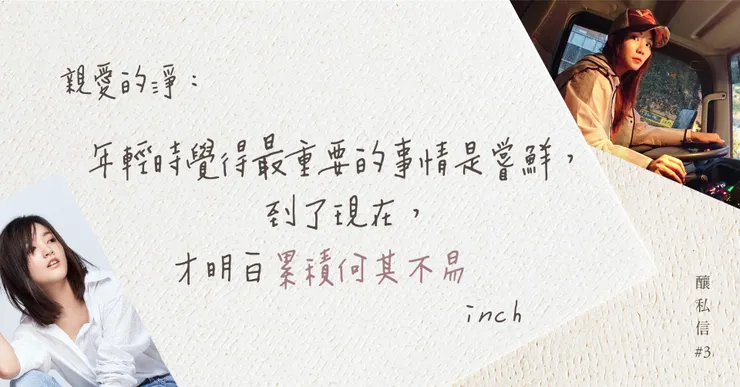 親愛的淨：
年輕時覺得最重要的事情是嘗鮮，
到了現在，
才明白累積何其不易
inch
釀私信
#3